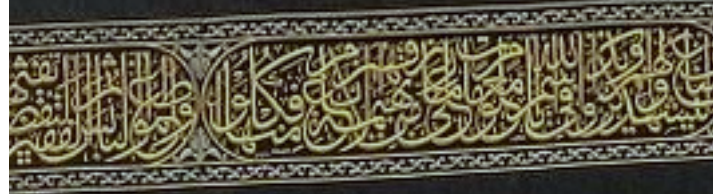 ليشهدوا منافع لهم ويذكروا اسم الله في أيام معلومات على ما رزقهم من بهيمة الأنعام فكلوا منها وأطعموا البائس الفقير ثم ليقضوا تفثهم